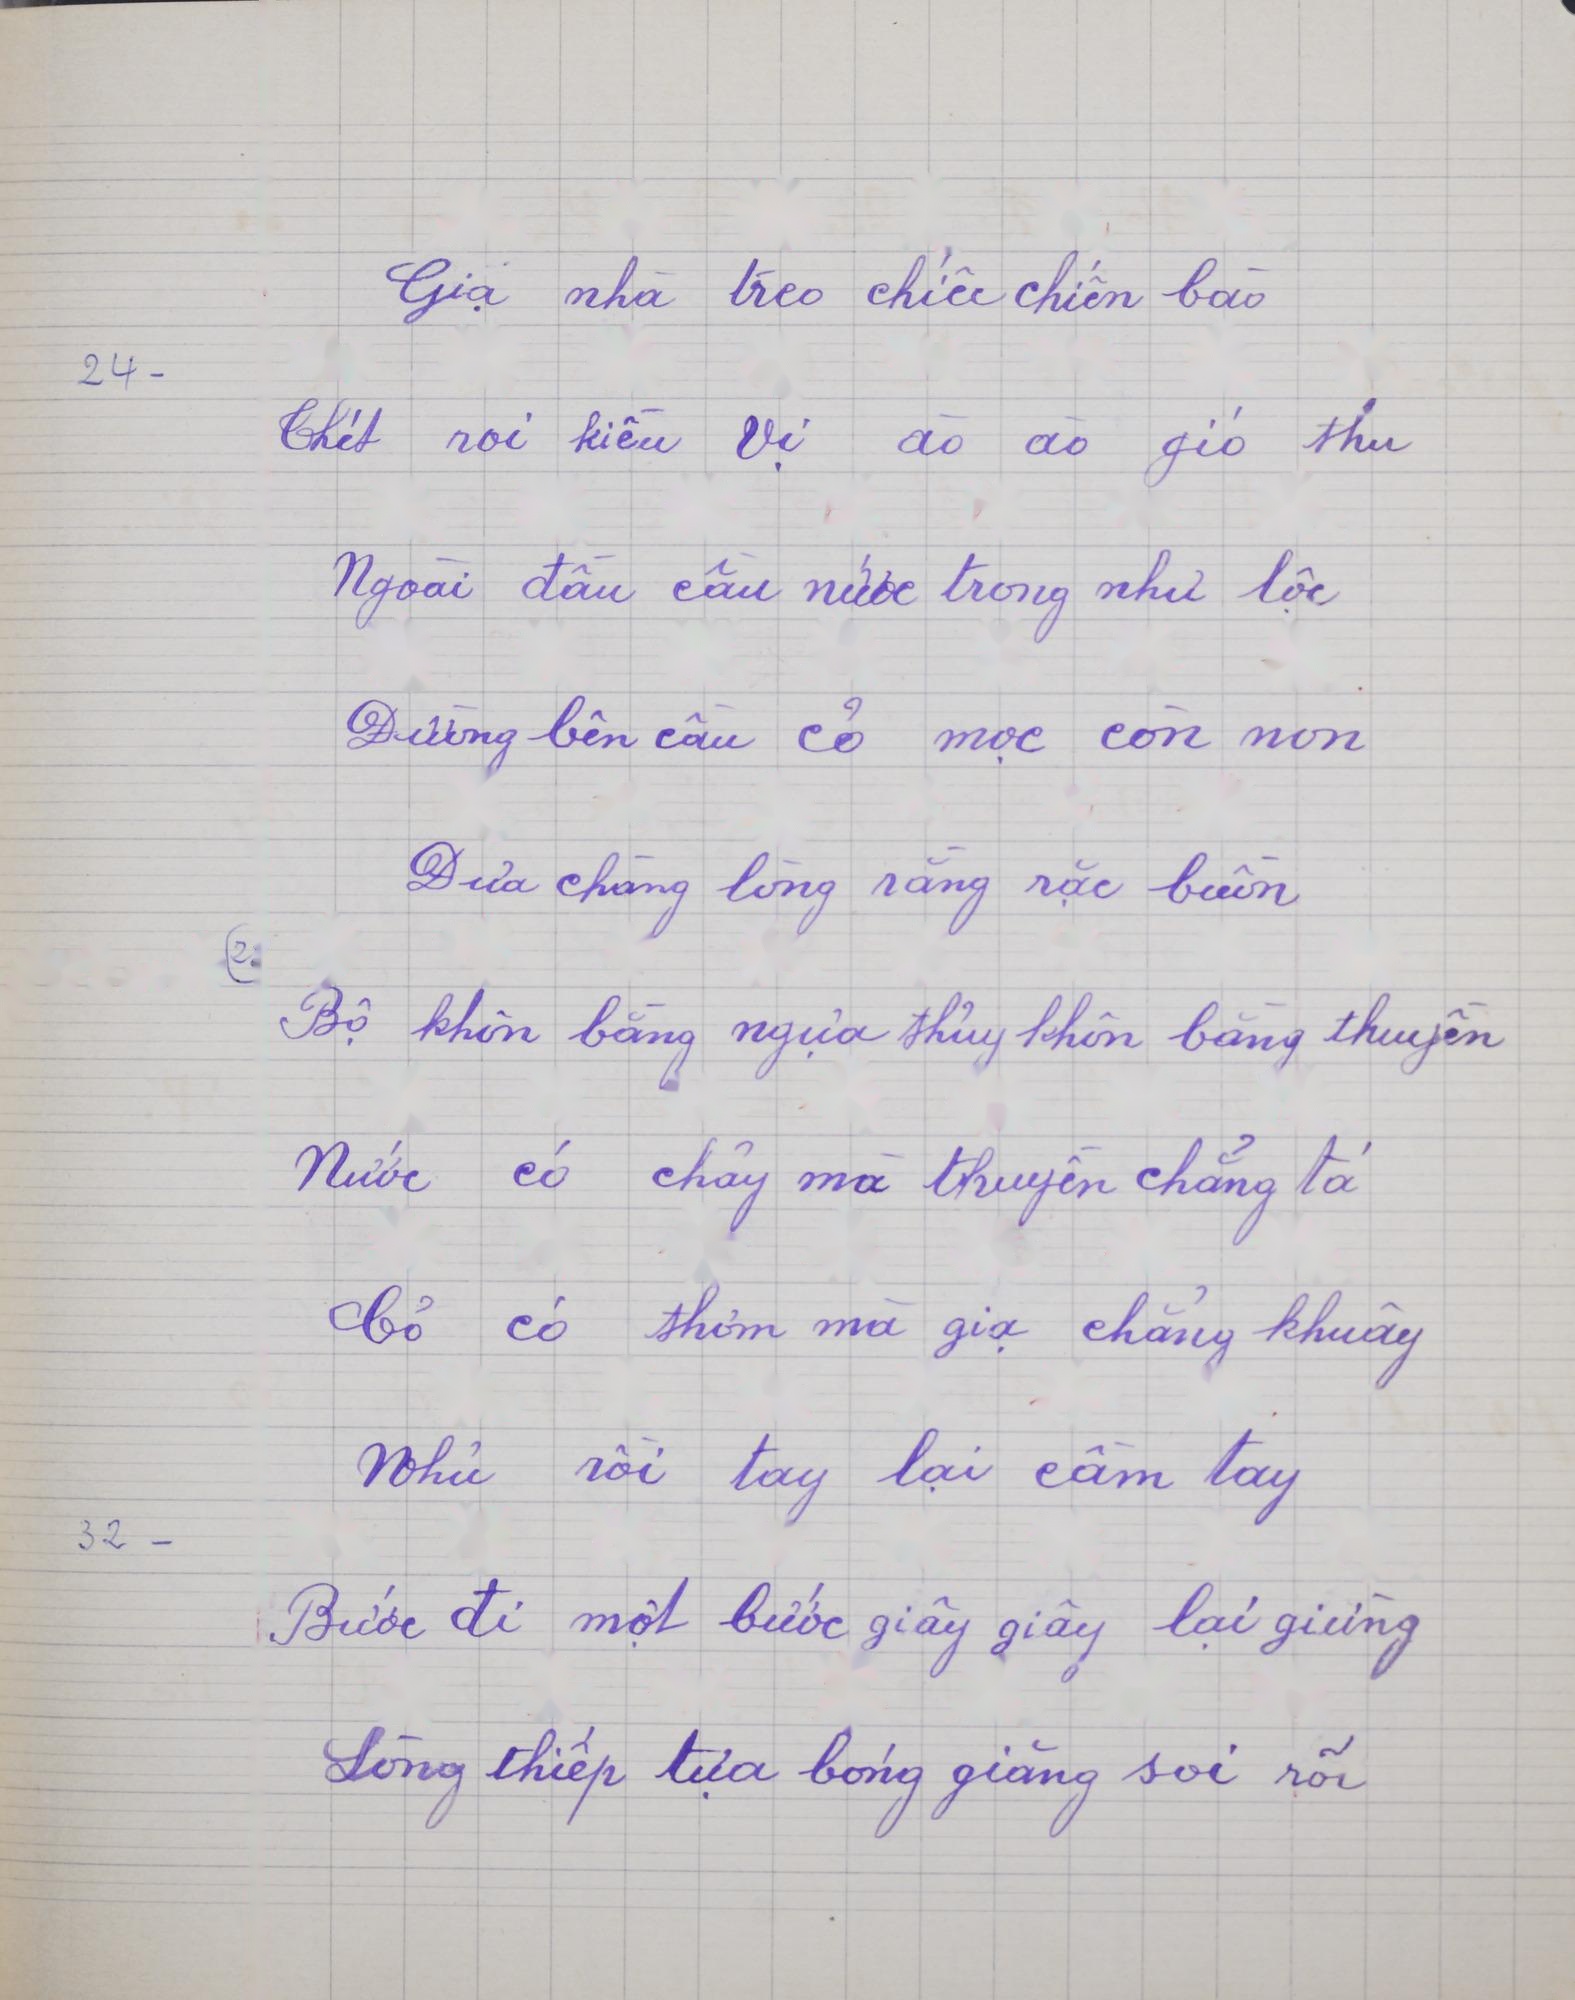 Giạ nhà treo chiếc chiến bào
24-
Thét roi kiều Vị ào ào gió thu
Ngoài đầu cầu nước trong như lộc
Đường bên cầu cỏ mọc còn non
Đưa chàng lòng rằng rặc buồn
(2.
Bộ khôn bằng ngựa thủy khôn bằng thuyền
Nước có chảy mà thuyền chẳng tá
Cỏ có thơm mà giạ chẳng khuây
Nhủ rồi tay lại cầm tay
32 -
Bước đi một bước giây giây lại giừng
Lòng thiếp tựa bóng giăng soi rõi